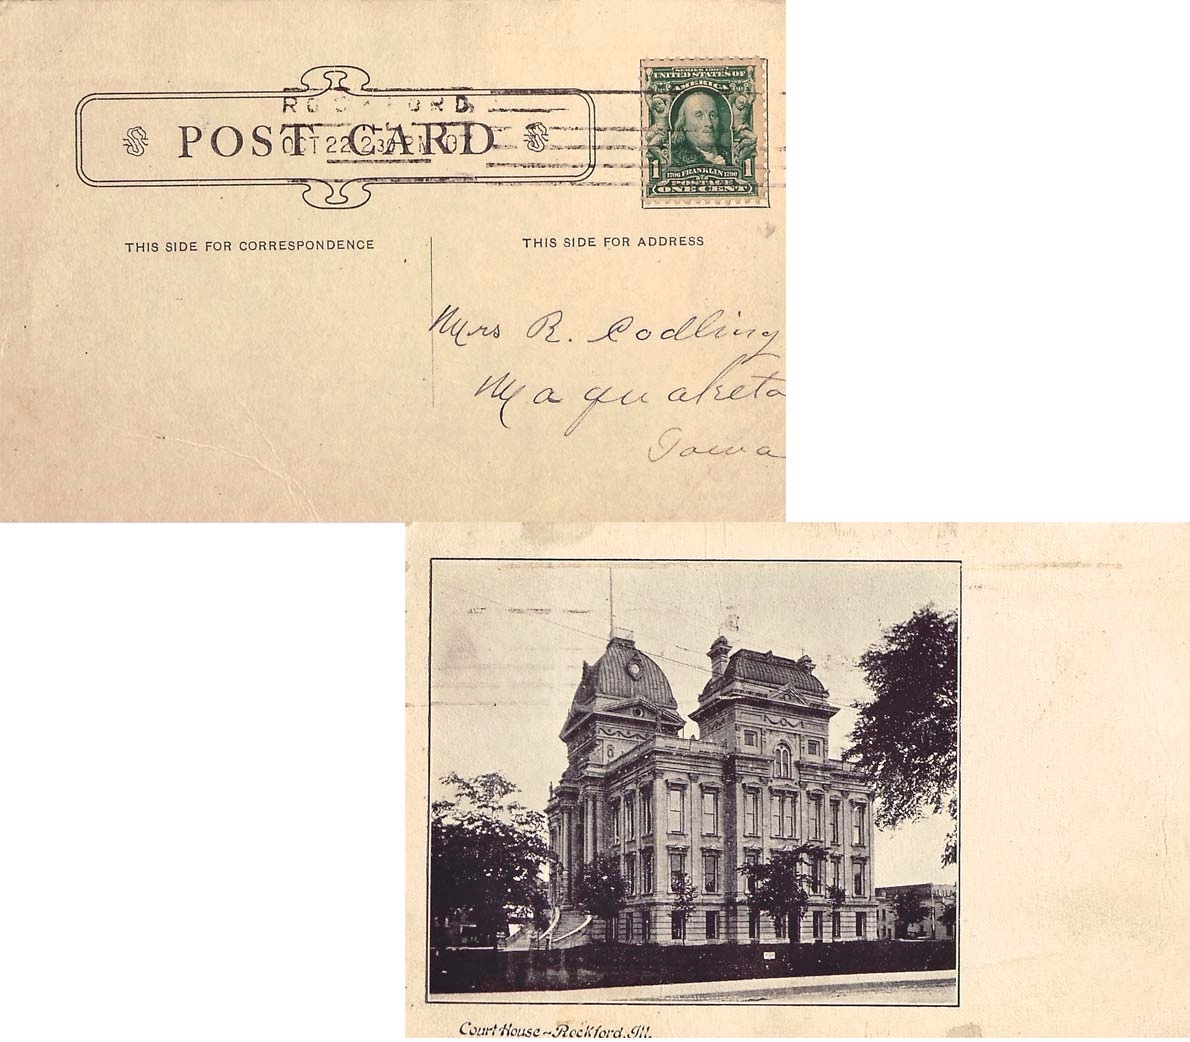 ROCKFORD,
OCT 22 230 PM 07
POST CARD
SERIES 1902
UNITED STATES OF
AMERICA
1 1706 FRANKLIN 1790 1
POSTAGE
ONE CENT
THIS SIDE FOR CORRESPONDENCE
THIS SIDE FOR ADDRESS
Mrs R. Codling
Maquaketa
Iowa
Court House ~ Rockford. Ill.